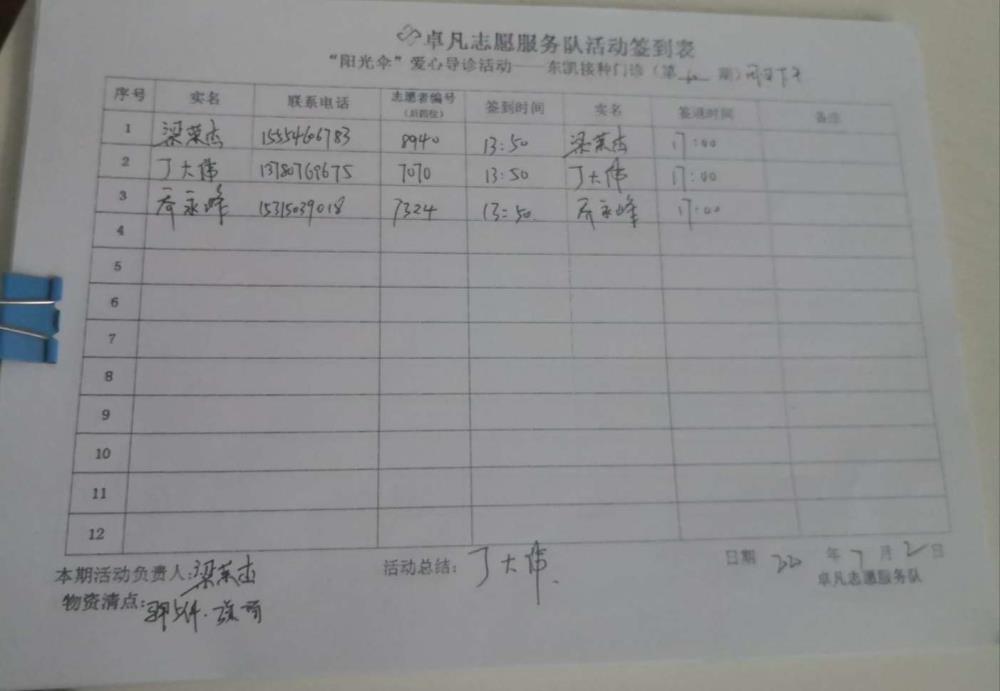 卓凡志愿服务队活动签到表
“阳光伞”爱心导诊活动——东凯接种门诊（第 期）
序号 实名 联系电话 志愿者编号（后四位） 签到时间 实名 签退时间 备注
1 梁荣杰 15554606783 8940 13:50 梁荣杰 17:00
2 丁大伟 13780769675 7070 13:50 丁大伟 17:00
3 乔永峰 15315039018 7324 13:50 乔永峰 17:00
4
5
6
7
8
9
10
11
12
本期活动负责人:梁荣杰 活动总结：丁大伟 日期 22 年 7 月 2 日
物资清点: 卓凡志愿服务队